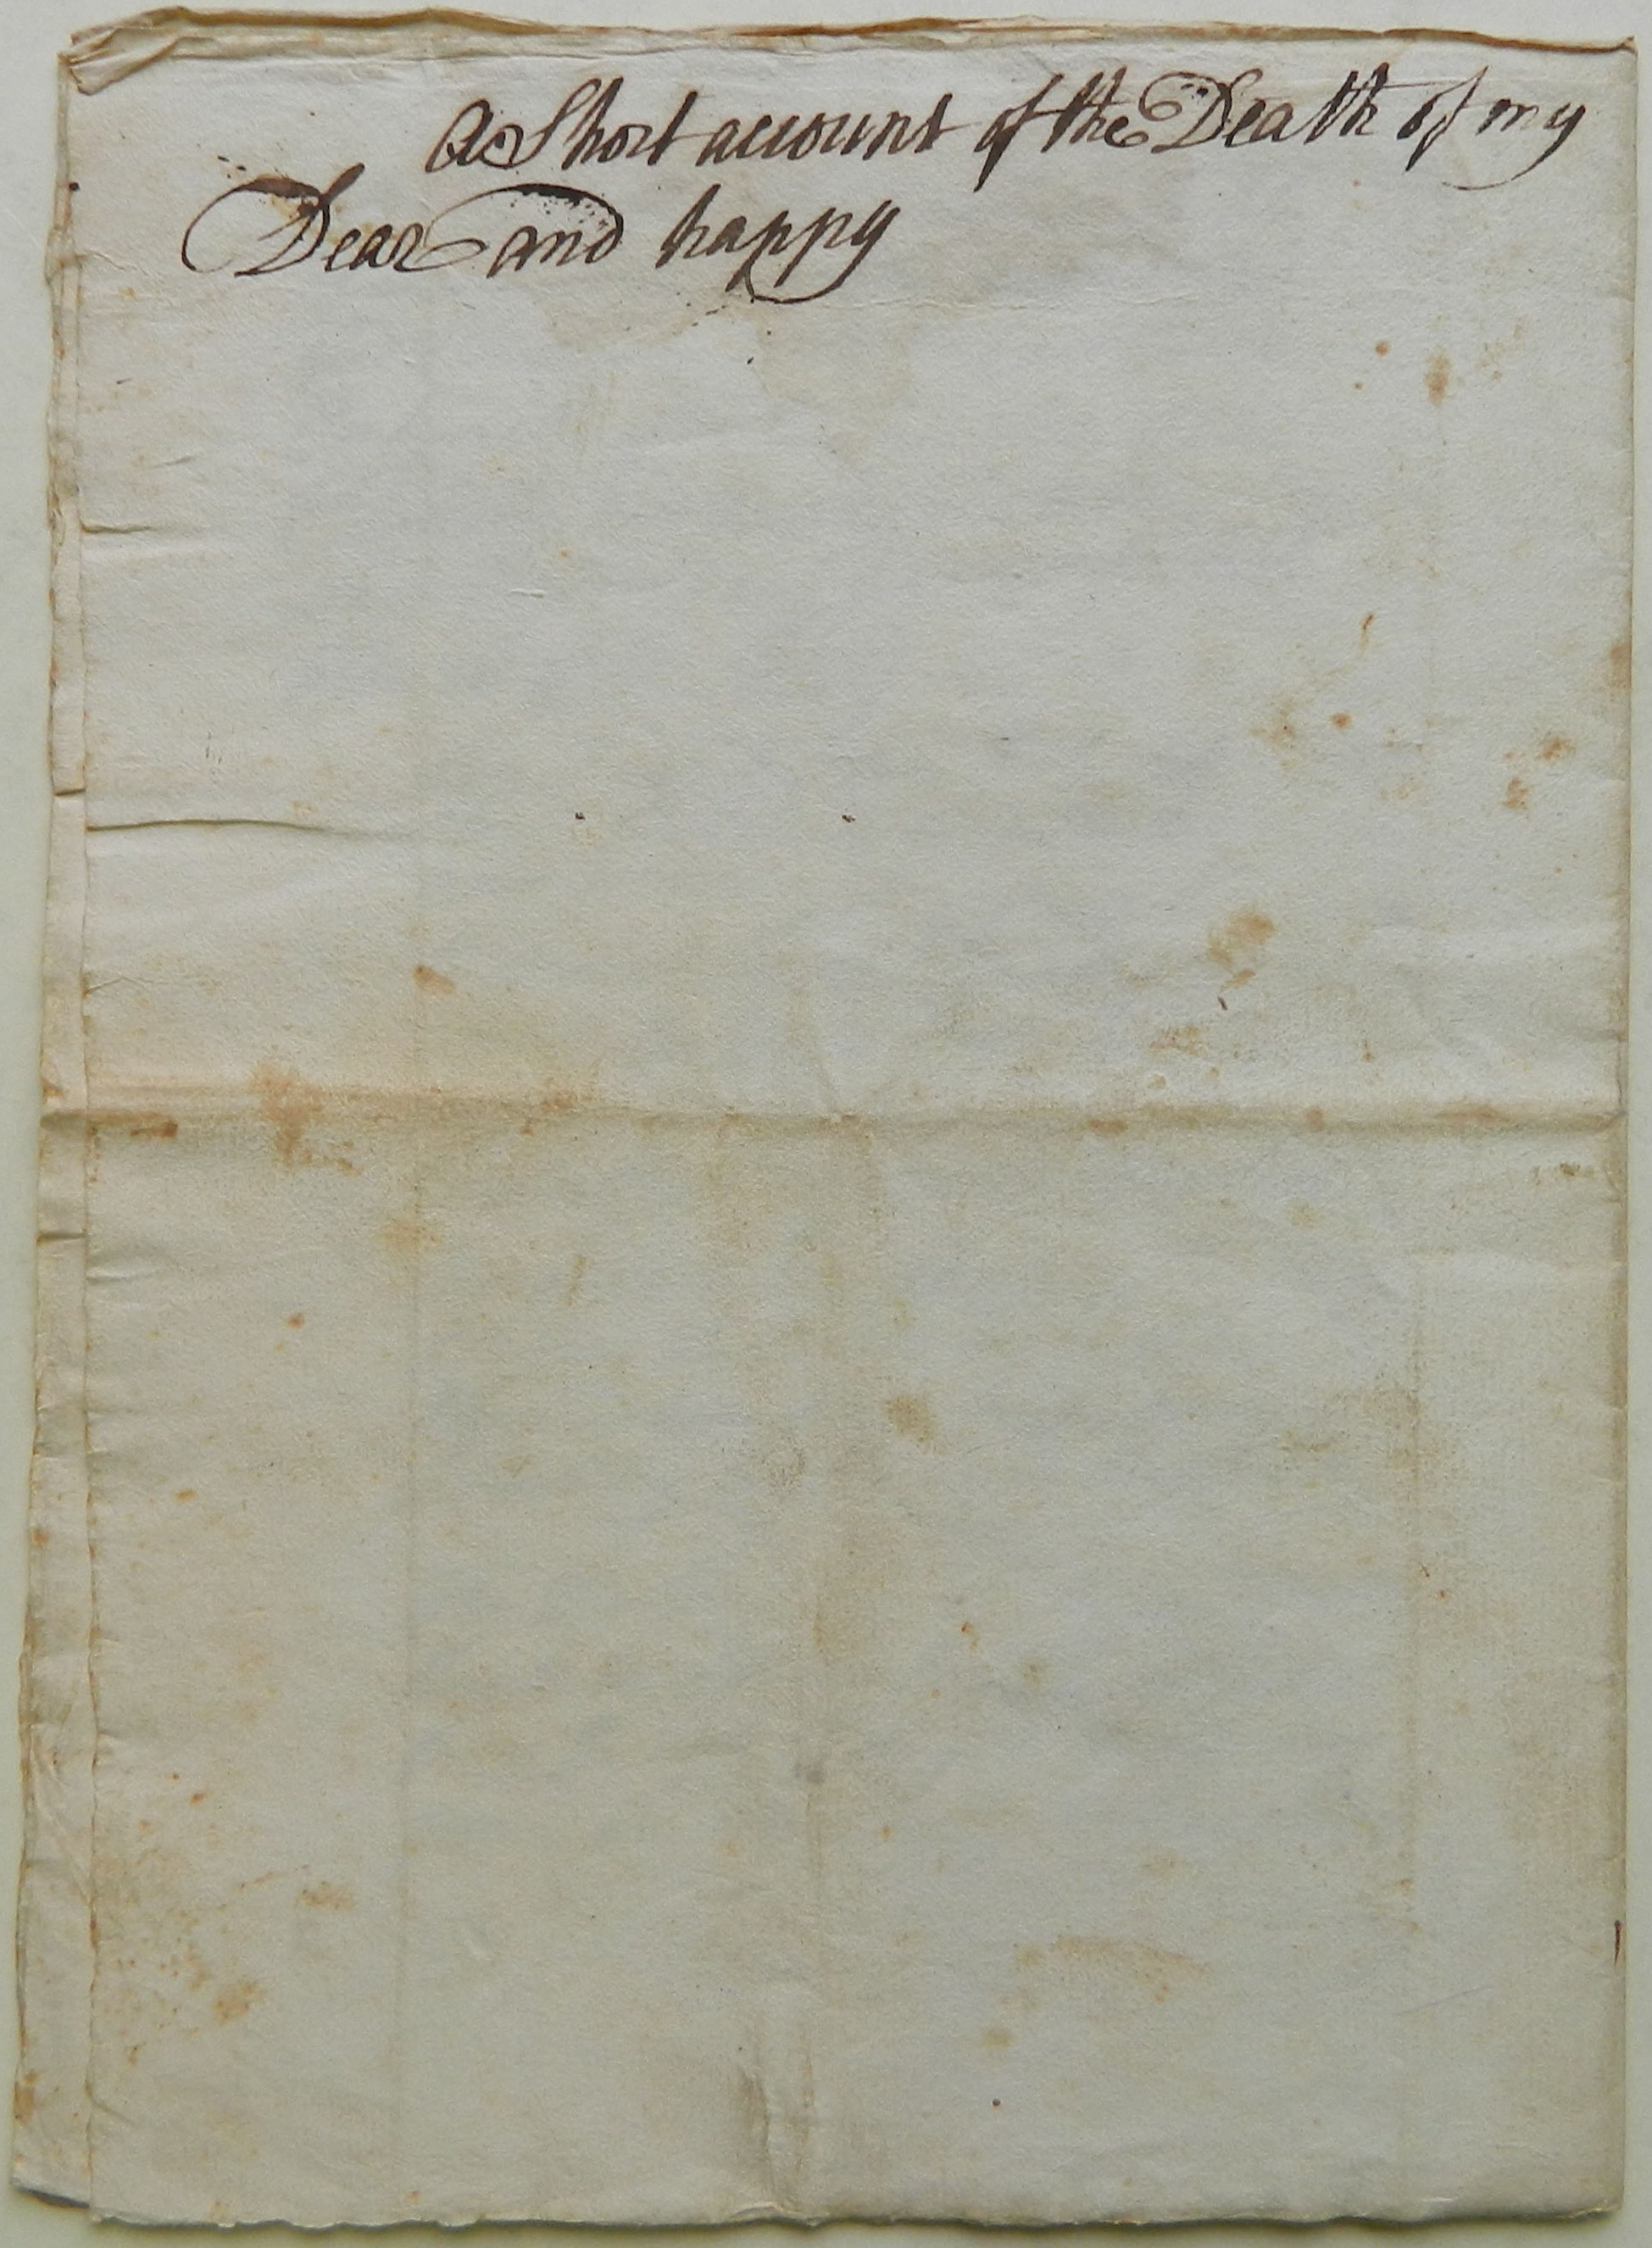 A Short account of the Death of my
Dear and happy